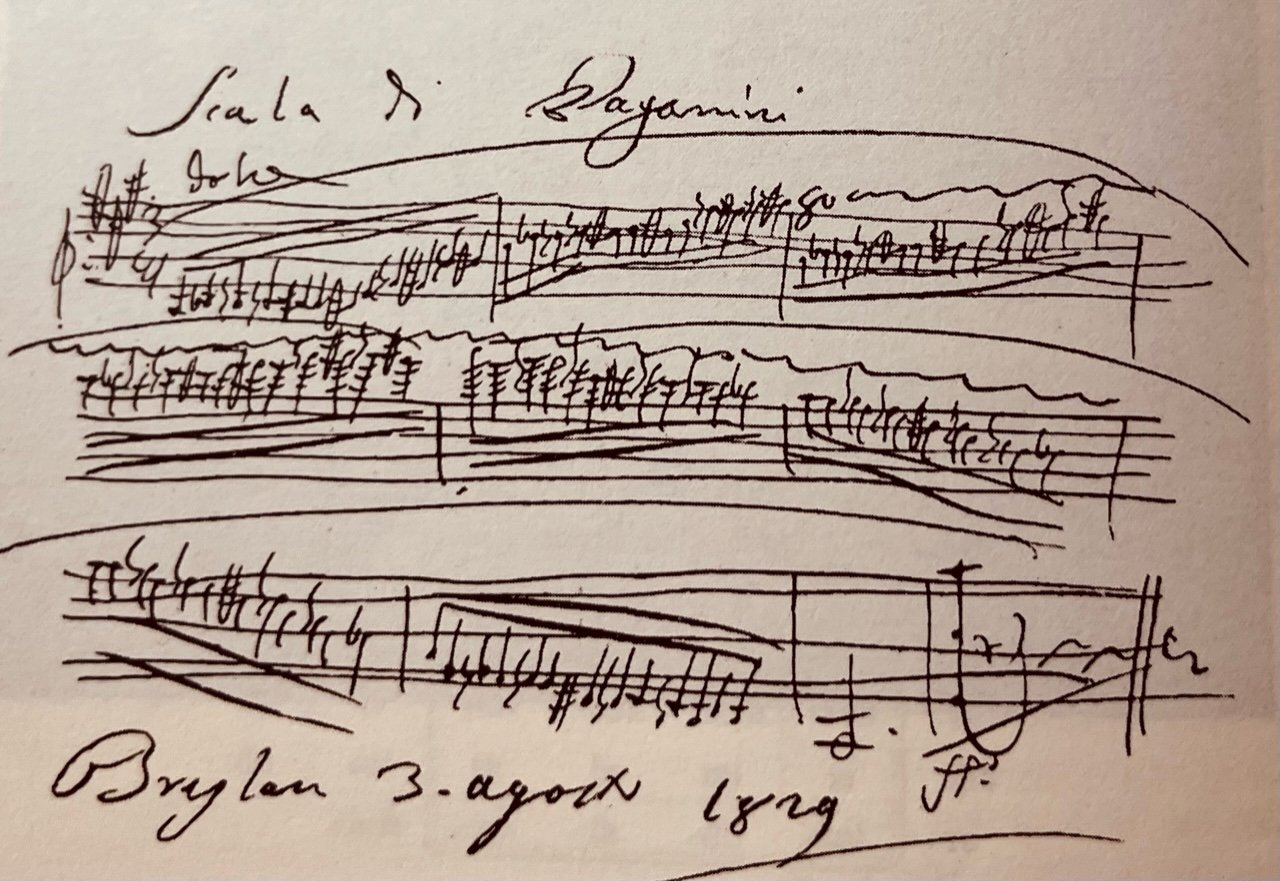 Scala di Paganini
dolce
8va
ff.
Breslau 3. agosto 1829